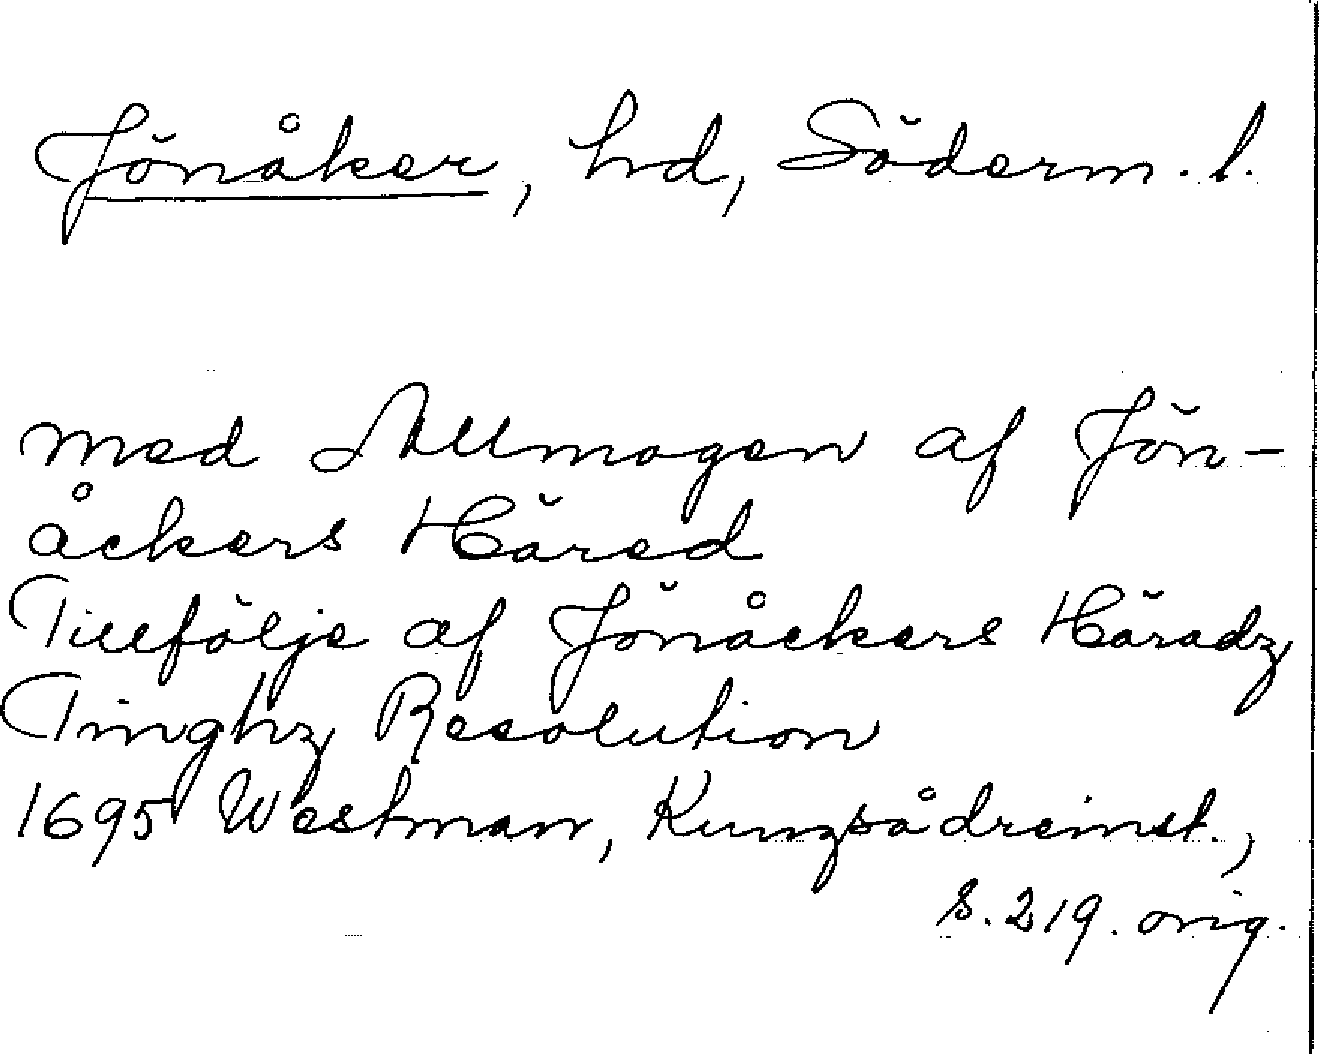 Jönåker, hd, Söderm. l.
med Allmogen af Jön-
åckers Häred
Tillfölje af Jönåckers Häradz
Tinghz Resolution
1695 Westman, Kungsådreinst.,
s. 219. orig.